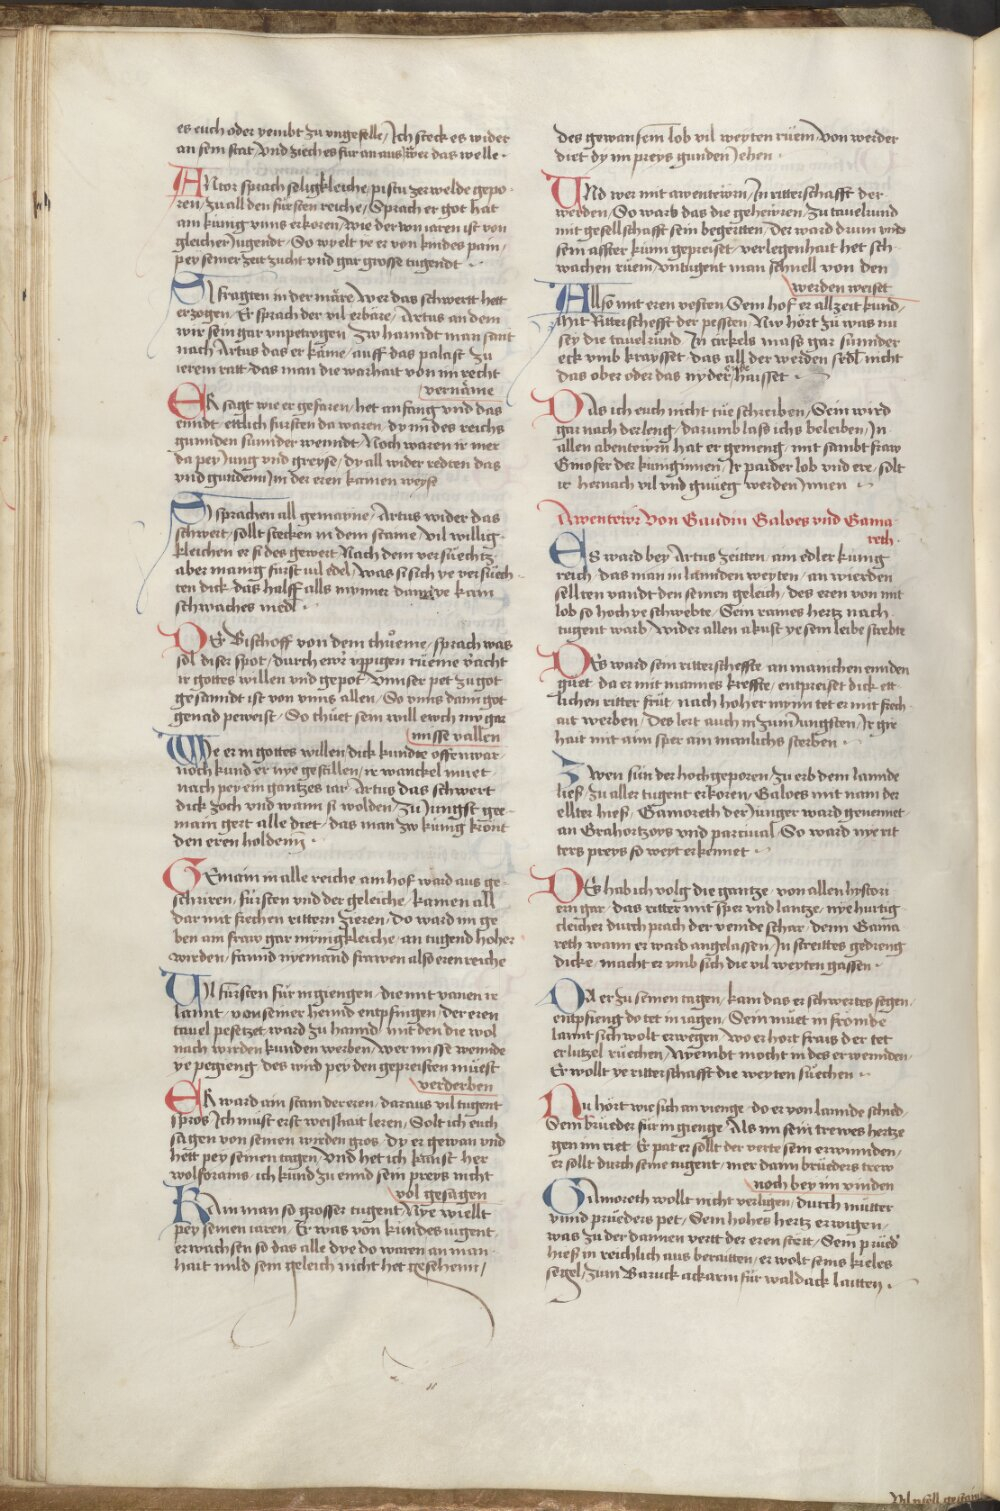 es euch oder yembt zu ungefelle / Ich steck es wider
an sein stat / Und ziech es für an aus / wer das welle ·
ANtor sprach seligkleiche / pistu zer welde gepo-
ren / zu all den fürsten reiche / Sprach er got hat
am kunig unns erkoren / Wie der von iaren ist von
gleicher Jugendt / So wyelt ye er von kindes pain /
pey seiner zeit zucht und gar grosse tugendt ·
SI fragten in der märe / Wer das schwertt hett
erzogen / Er sprach der vil erbäre / Artus an dem
wir sein gar unpetrogen / Zw hanndt man sant
nach Artus das er käme / auff das palast zu
ierem ratt / das man die warhait von im recht
vernäme
ER sagt wie er gefaren / het anfang und das
ennde / ettlich fürsten da waren / dy im des reichs
gunnden sunnder wennde / Noch waren ir mer
da pey Jung und greyse / dy all wider redten das
und gunden im der eren kainen weyse
SI sprachen all gemayne / Artus wider das
schwert / sollt stecken in dem staine / Vil willig-
kleichen er si des gewert / Nach dem versüechtz
aber manig fürst vil edel / Was si sich ye versüech-
ten dick / das halff alls mynner dann ye kain
schwaches medl ·
DEr Bischoff von dem thüeme / sprach was
sol diser spot / durch ewr üppigen rüeme / v̈acht
ir gottes willen und gepot / Unnser pet zu got
gesanndt ist von unns allen / So unns dann got
genad peweist / So thüet sein will ewch nny gar
misse vallen
WIe er in gottes willen / dick kundte offenwar /
noch kund er nye gestillen / ir wanckel müet
nach pey ein gantzes iar / Artus das schwert
dick zoch und wann si wolden / Zu Jungst ge-
main gert alle diet / das man zw kunig krönt
den eren holdenn ·
GEmain in alle reiche am hof ward aus ge-
schriren / fürsten und der geleiche / kamen all
dar mit frechen rittern zieren / do ward im ge
ben ain fraw gar mynigkleiche / an tugend hoher
wirden / fannd nyemand frawen also eren reiche
VIl fürsten für in giengen / die mit vanen ir
lannt / von seiner hennd entpfingen / der eren
tauel pesetzet ward zu hannd / mit den die wol
nach wirden kunden werben / wer misse wennde
ye pegieng / des wird pey den gepreisten müest
verderben
ER ward ain stam der eren / daraus vil tugent
spros / Ich müst erst weishait leren / Solt ich euch
sagen von seinen wirden gros / dy er gewan und
hett pey seinen tagen / Und het ich kunst her
wolframs / ich kund zu ennd sein preys nicht
vol gesagen
KAin man so grosser tugent / Nye wiellt
pey seinen iaren / Er was von kindes iugent
erwachsen so das alle dye do waren an man-
hait mild sein geleich nicht het gesehenn /
des gewan sein lob vil weyten rüem / von werder
diet dy im preys gunden Jehen ·
UNd wer mit awentewrn / In ritterschafft der
werden / So warb das die gehewren / Zu tauelrund
mit gesellschafft sein begertten / Der ward drum und
sein affter künn gepreiset / verlegenhait het sch-
wachen rüem / untugent man schnell von den
werden weiset
ALlso mit eren vesten / Sein hof er allzeit kund /
Mit Ritterschefft der pessten / Nw hört zu was nu
sey die tauelrund / In cirkels mass gar sunnder
eck umb kraysset / das all der werden sydl nicht
das ober oder das nyder haisset ·
DAs ich euch nicht tüe schreiben / Sein wird
gar nach der leng / darumb lass ichs beleiben / In
allen abentewrn hat er gemeng / mit sambt fraw
Gmofer der kunginnen / Ir paider lob und ere / solt
ir hernach vil und gnüeg werden Jnnen ·
Awentewr von Gaudin Galoes und Gama-
reth ·
ES ward bey Artus zeitten / am edler kunig
reich / das man in lannden weyten / an wierden
sellten vandt den seinen geleich / des eren von mit
lob so hoch ye schwebte / Sein raines hertz nach
tugent warb / wider allen akust ye sein leibe strebte
DEs ward sein ritterscheffte an mainchen ennden
güet / da er mit mannes kreffte / entpreiset dick ett-
lichen ritter früt / nach hoher mynn tet er mit frech-
ait werben / des lert auch in zum Jungsten / Ir gir-
hait mit aim sper ain manlichs sterben ·
ZWen sün der hochgeporen / zu erb dem lannde
lies / Zu aller tugent erkoren / Galoes mit nam der
ellter hies / Gamoreth der Junger ward genennet
an Grahortzoys und parcival / So ward nye rit-
ters preys so weyt erkennet ·
DEs hab ich volg die gantze / von allen hystori-
ern gar / das ritter mit sper und lantze / nye hurtig-
cleicher durch prach der veinde schar / denn Gama-
reth wann er ward angelassen / In streittes gedreng
dicke / macht er umb sich die vil weyten gassen ·
DA er zu seinen tagen / kam das er schwertes segen /
entpfieng do tet in iagen / Sein müet in frömde
lannt sich wolt erwegen / wo er hort frais der tet
er lützel rüechen / Nyembt mocht in des erwennden /
Er wollt ye ritterschafft die weyten süechen ·
NU hört wie sich an vienge / do er von lannde schied /
Sein brüeder für in gienge / Als im sein trewes hertze
gen im riet / Er pat er sollt der verte sein erwinnden /
er sollt durch seine tugent / mer dann brüeders trew
noch bey im vinden
GAmoreth wollt nicht verligen / durch mütter
unnd prüeders pet / Sein hohes hertz erwigen /
was zu der dannen vertt der eren stett / Sein prüed'
hies in reichlich aus beraitten / er wolt seins kieles
segel / zum Baruck ackarin für waldack laitten ·